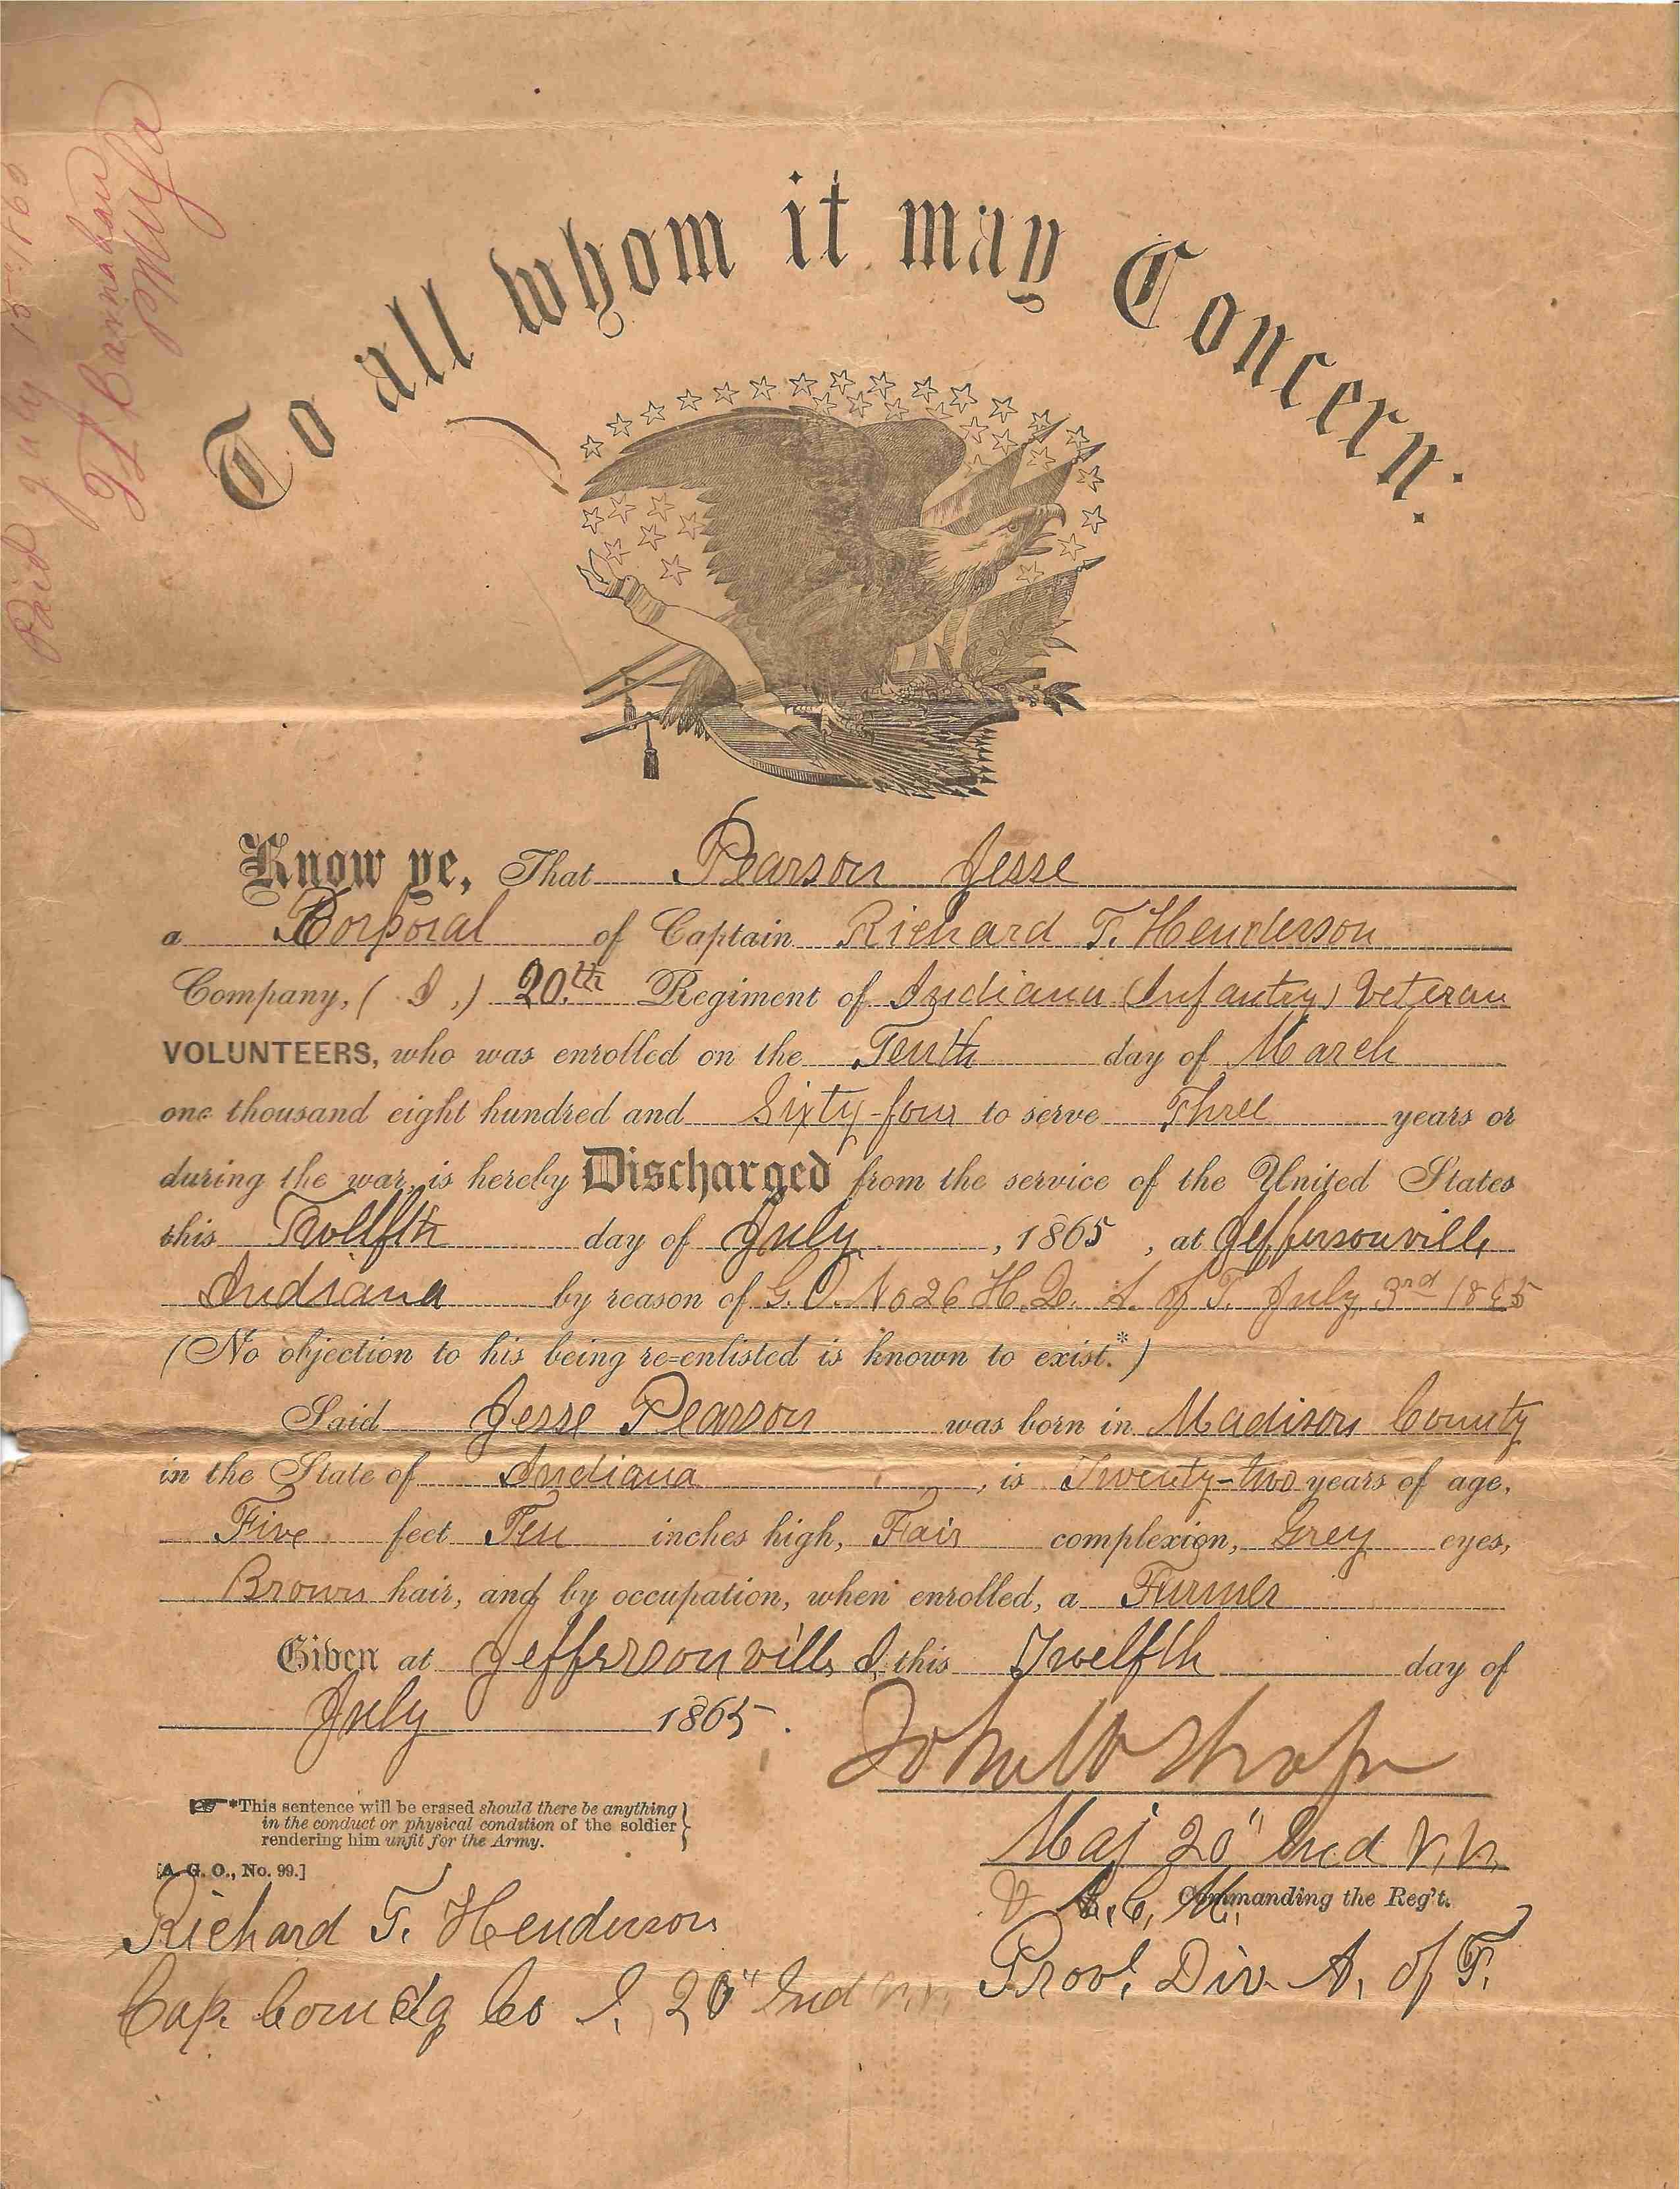 Paid July 15 1865
T L Barnahan
PMUSA
To all whom it may Concern:
Know ye, That Pearson Jesse
a Corporal of Captain Richard T. Henderson
Company, ( I, ) 20.th Regiment of Indiana (Infantry) Veteran
VOLUNTEERS, who was enrolled on the Tenth day of March
one thousand eight hundred and Sixty-four to serve Three years or
during the war, is hereby Discharged from the service of the United States
this Twelfth day of July, 1865, at Jeffersonville
Indiana by reason of G.O. No 26 H.Q. A. of T. July 3rd 1865
(No objection to his being re-enlisted is known to exist.*)
Said Jesse Pearson was born in Madison County
in the State of Indiana, is Twenty-two years of age,
Five feet Ten inches high, Fair complexion, Grey eyes,
Brown hair, and by occupation, when enrolled, a Farmer
Given at Jeffersonville I. this Twelfth day of
July 1865.
*This sentence will be erased should there be anything
in the conduct or physical condition of the soldier
rendering him unfit for the Army.
[A. G. O., No. 99.]
John W Shafer
Maj 20" Ind V.V.
Commanding the Reg't.
A. C. M.
Provl. Div. A. of T.
Richard T. Henderson
Cap. Comdg Co I. 20" Ind V.V.